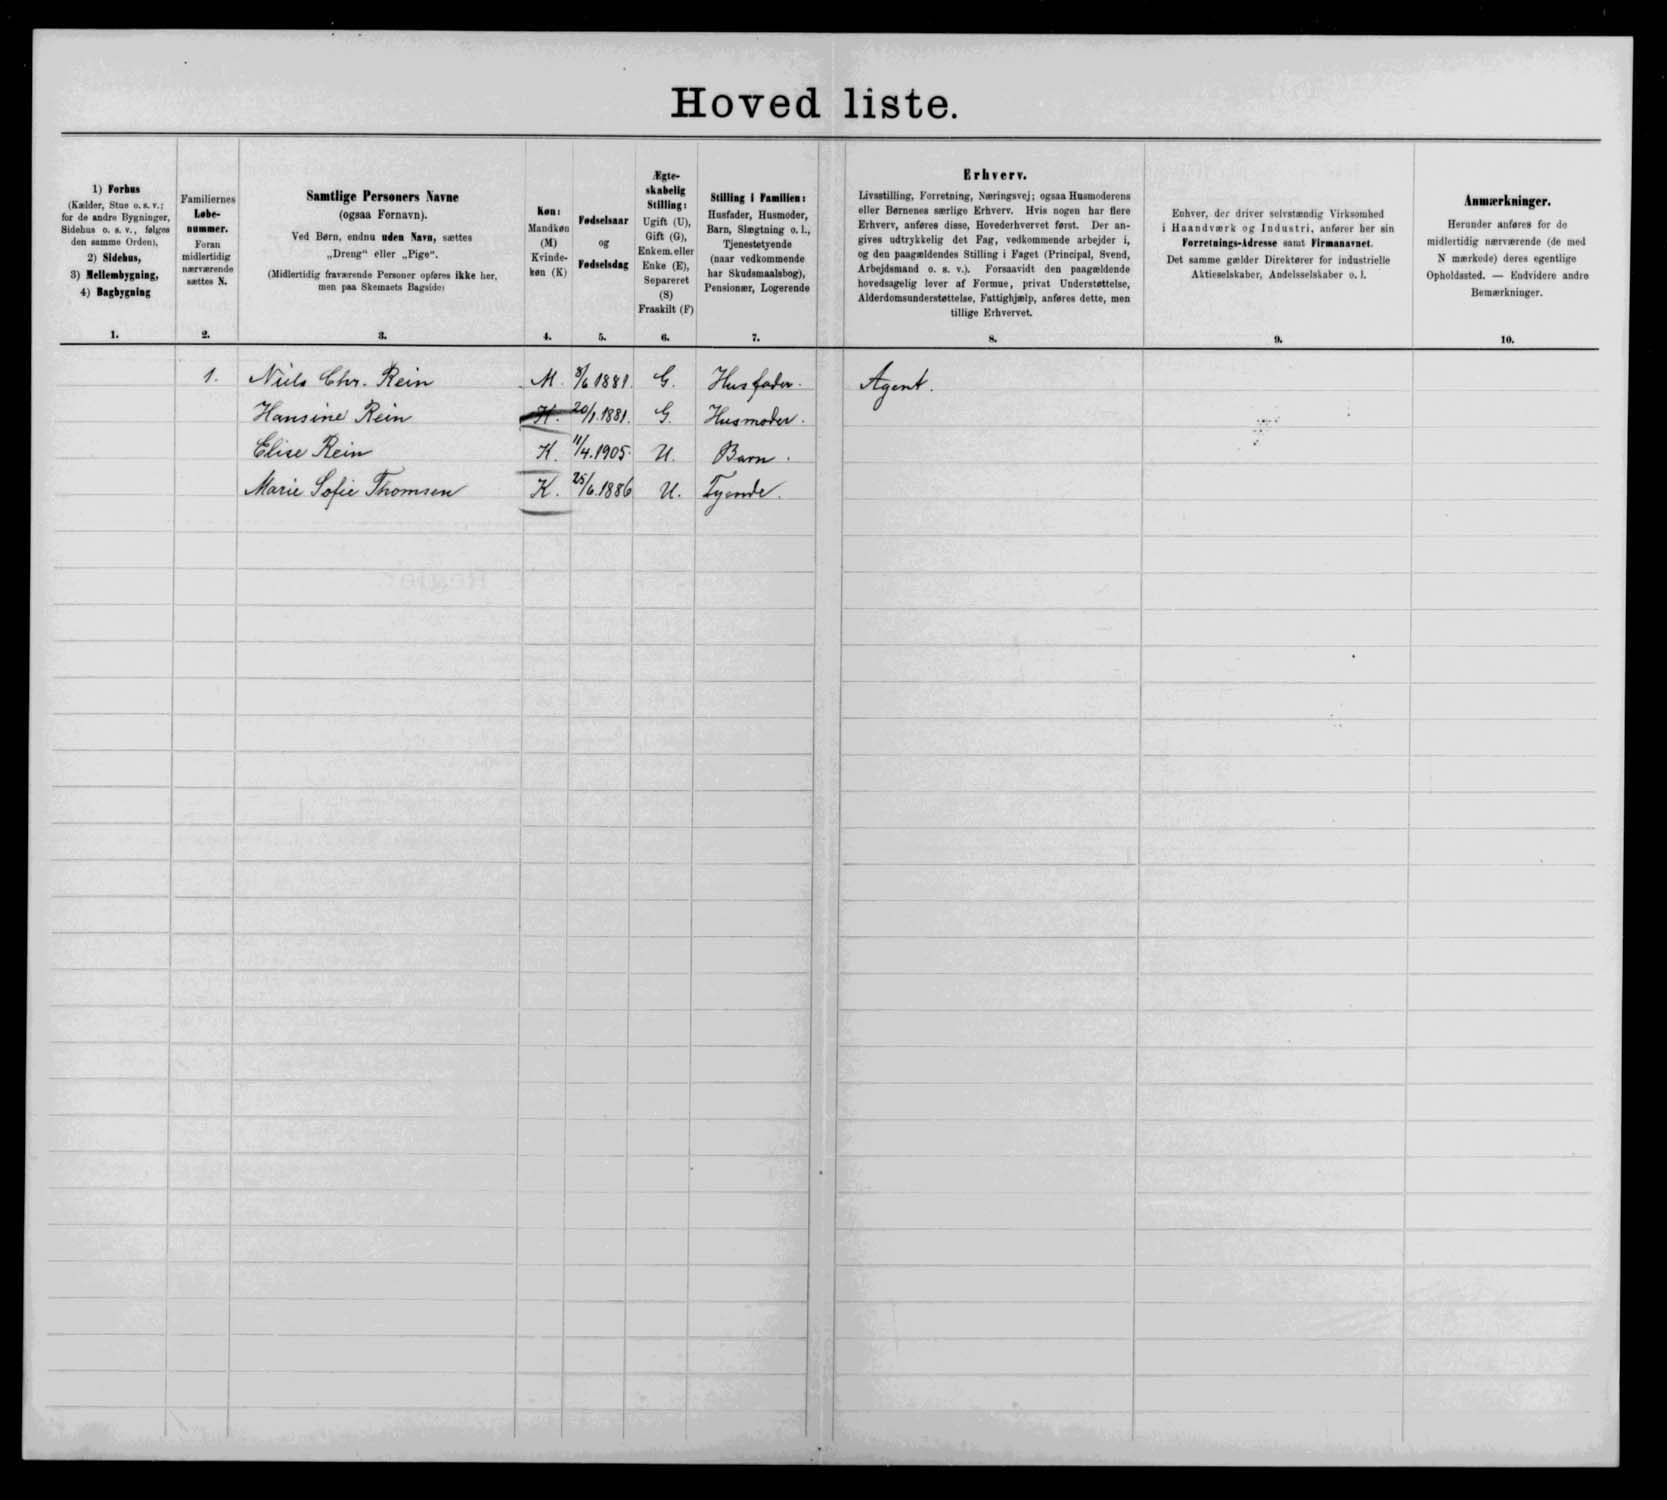 Hovedliste.
1) Forhus
(Kælder, Stue o. s. v.;
for de andre Bygninger,
Sidehus o. s. v., følges
den samme Orden),
2) Sidehus,
3) Mellembygning,
4) Bagbygning
1.
Familiernes
Løbe-
nummer.
Foran
midlertidig
nærværende
sættes N.
2.
Samtlige Personers Navne
(ogsaa Fornavn).
Ved Børn, endnu uden Navn, sættes
„Dreng“ eller „Pige“.
(Midlertidig fraværende Personer opføres ikke her,
men paa Skemaets Bagside)
3.
Køn:
Mandkøn
(M)
Kvinde-
køn (K)
4.
Fødselsaar
og
Fødselsdag
5.
Ægte-
skabelig
Stilling:
Ugift (U),
Gift (G),
Enkem. eller
Enke (E),
Separeret
(S)
Fraskilt (F)
6.
Stilling i Familien:
Husfader, Husmoder,
Barn, Slægtning o. l.,
Tjenestetyende
(naar vedkommende
har Skudsmaalsbog),
Pensionær, Logerende
7.
Erhverv.
Livsstilling, Forretning, Næringsvej; ogsaa Husmoderens
eller Børnenes særlige Erhverv. Hvis nogen har flere
Erhverv, anføres disse, Hovederhvervet først. Der an-
gives udtrykkelig det Fag, vedkommende arbejder i,
og den paagældendes Stilling i Faget (Principal, Svend,
Arbejdsmand o. s. v.). Forsaavidt den paagældende
hovedsagelig lever af Formue, privat Understøttelse,
Alderdomsunderstøttelse, Fattighjælp, anføres dette, men
tillige Erhvervet.
8.
Enhver, der driver selvstændig Virksomhed
i Haandværk og Industri, anfører her sin
Forretnings-Adresse samt Firmanavnet.
Det samme gælder Direktører for industrielle
Aktieselskaber, Andelsselskaber o. l.
9.
Anmærkninger.
Herunder anføres for de
midlertidig nærværende (de med
N mærkede) deres egentlige
Opholdssted. — Endvidere andre
Bemærkninger.
10.
1. Niels Chr. Rein M. 8/6 1881. G. Husfader. Agent.
Hansine Rein K. 20/1. 1881. G. Husmoder.
Elise Rein K. 11/4. 1905. U. Barn.
Marie Sofie Thomsen K. 25/6. 1886 U. Tyende.